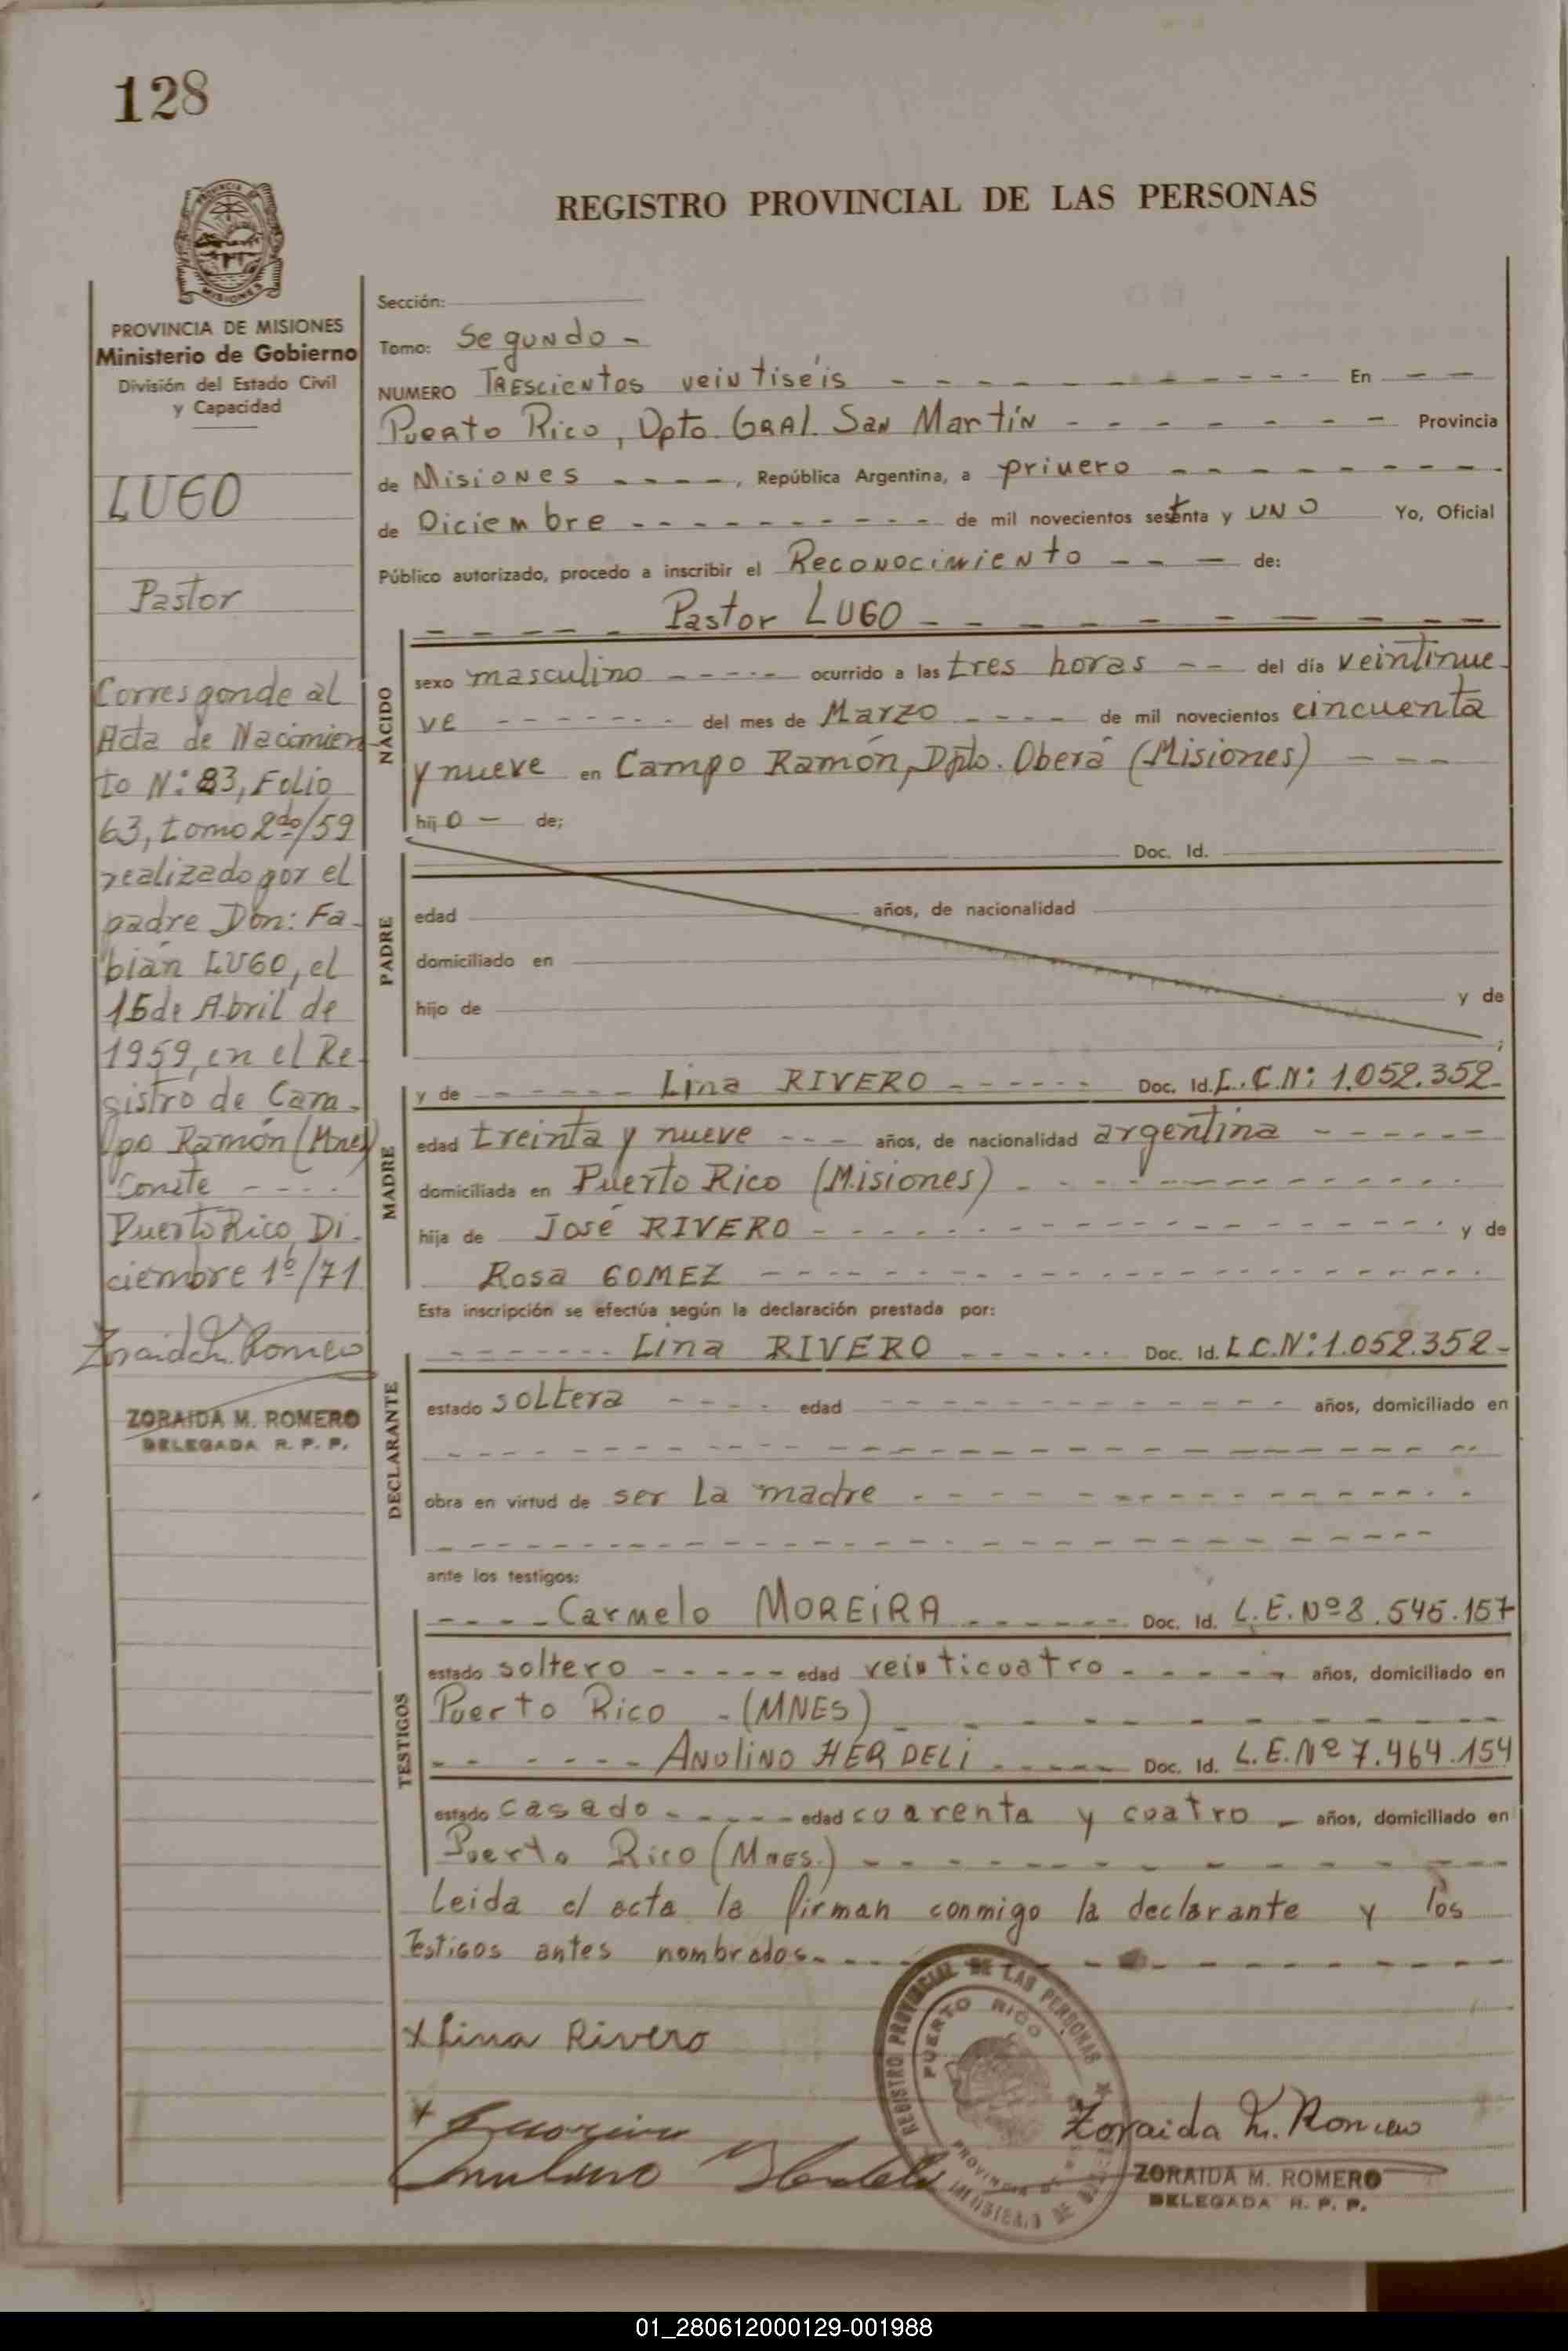 128
PROVINCIA DE MISIONES
Ministerio de Gobierno
División del Estado Civil
y Capacidad
LUGO
Pastor
Corresponde al
Acta de Nacimien-
to N: 83, Folio
63, tomo 2do/59
realizado por el
padre Don: Fa-
bián LUGO, el
15 de Abril de
1959, en el Re-
gistro de Cam-
po Ramón (Mnes)
Conste - - - -
Puerto Rico, Di-
ciembre 1º/71
Zoraida M. Romero
ZORAIDA M. ROMERO
DELEGADA R. P. P.
REGISTRO PROVINCIAL DE LAS PERSONAS
Sección:
Tomo: Segundo -
NUMERO Trescientos veintiséis - - - En - -
Puerto Rico, Dpto. GRAL. San Martín - - - Provincia
de Misiones - - - -, República Argentina, a primero - - -
de Diciembre - - - de mil novecientos setenta y UNO Yo, Oficial
Público autorizado, procedo a inscribir el Reconocimiento - - - de:
- - - Pastor LUGO - - -
NACIDO
sexo masculino - - - ocurrido a las tres horas - - del día veintinue-
ve - - - del mes de Marzo - - - de mil novecientos cincuenta
y nueve en Campo Ramón, Dpto. Oberá (Misiones) - - -
hijo - de;
PADRE
Doc. Id.
edad años, de nacionalidad
domiciliado en
hijo de y de
;
MADRE
y de - - - Lina RIVERO - - - Doc. Id. L.C.N: 1.052.352-
edad treinta y nueve - - - años, de nacionalidad argentina - - -
domiciliada en Puerto Rico (Misiones) - - -
hija de José RIVERO - - - y de
Rosa GOMEZ - - -
Esta inscripción se efectúa según la declaración prestada por:
DECLARANTE
- - - Lina RIVERO - - - Doc. Id. L.C.N: 1.052.352-
estado soltera - - - edad - - - años, domiciliado en
- - -
obra en virtud de ser la madre - - -
- - -
ante los testigos:
TESTIGOS
- - - Carmelo MOREIRA - - - Doc. Id. L.E. Nº 8.545.157
estado soltero - - - edad veinticuatro - - - años, domiciliado en
Puerto Rico - (MNES) - - -
- - - Anulino HERDELI - - - Doc. Id. L.E. Nº 7.464.154
estado casado - - - edad cuarenta y cuatro - años, domiciliado en
Puerto Rico (Mnes.) - - -
Leida el acta la firman conmigo la declarante y los
Testigos antes nombrados. - - -
x Lina Rivero
REGISTRO PROVINCIAL DE LAS PERSONAS
PUERTO RICO
Zoraida M. Romero
ZORAIDA M. ROMERO
DELEGADA R. P. P.
01_280612000129-001988